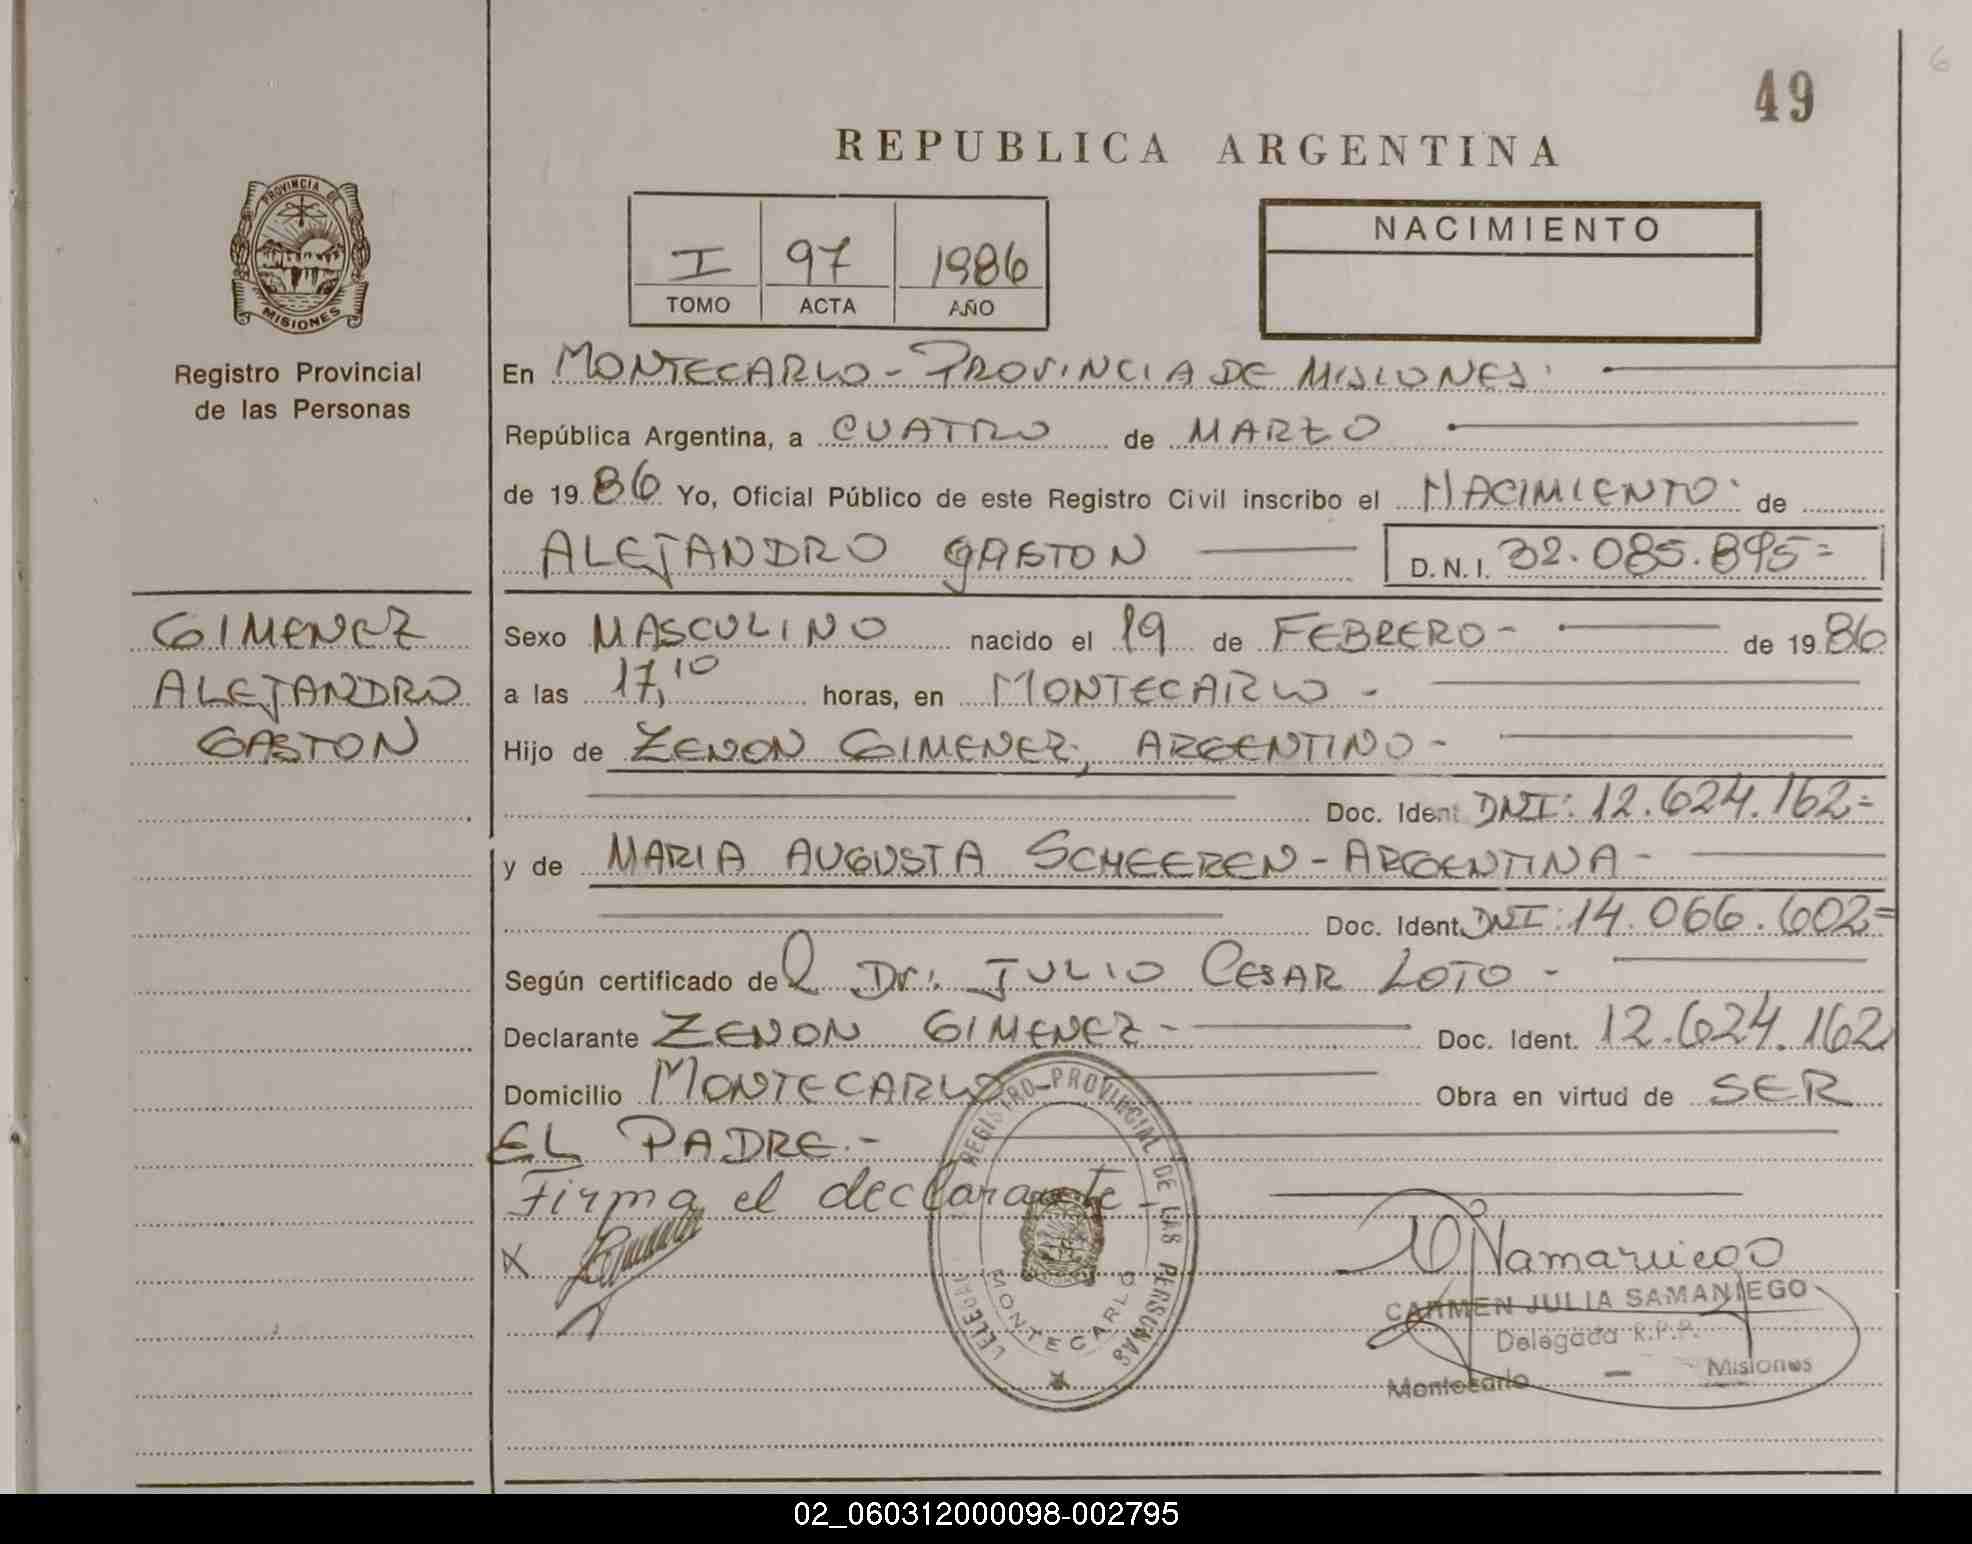 49
REPUBLICA ARGENTINA
PROVINCIA DE
MISIONES
Registro Provincial
de las Personas
I 97 1986
TOMO ACTA AÑO
NACIMIENTO
En MONTECARLO - PROVINCIA DE MISIONES.
República Argentina, a CUATRO de MARZO
de 1986 Yo, Oficial Público de este Registro Civil inscribo el NACIMIENTO de
ALEJANDRO GASTON D.N.I. 32.085.895=
GIMENEZ
ALEJANDRO
GASTON
Sexo MASCULINO nacido el 19 de FEBRERO - de 1986
a las 17,10 horas, en MONTECARLO -
Hijo de ZENON GIMENEZ, ARGENTINO -
Doc. Ident. DNI: 12.624.162=
y de MARIA AUGUSTA SCHEEREN - ARGENTINA -
Doc. Ident. DNI: 14.066.602=
Según certificado de Dr. JULIO CESAR LOTO -
Declarante ZENON GIMENEZ - Doc. Ident. 12.624.162
Domicilio MONTECARLO Obra en virtud de SER
EL PADRE.-
Firma el declarante
X
REGISTRO PROVINCIAL DE LAS PERSONAS
MONTECARLO
CARMEN JULIA SAMANIEGO
Delegada R.P.P.
Montecarlo - Misiones
02_060312000098-002795